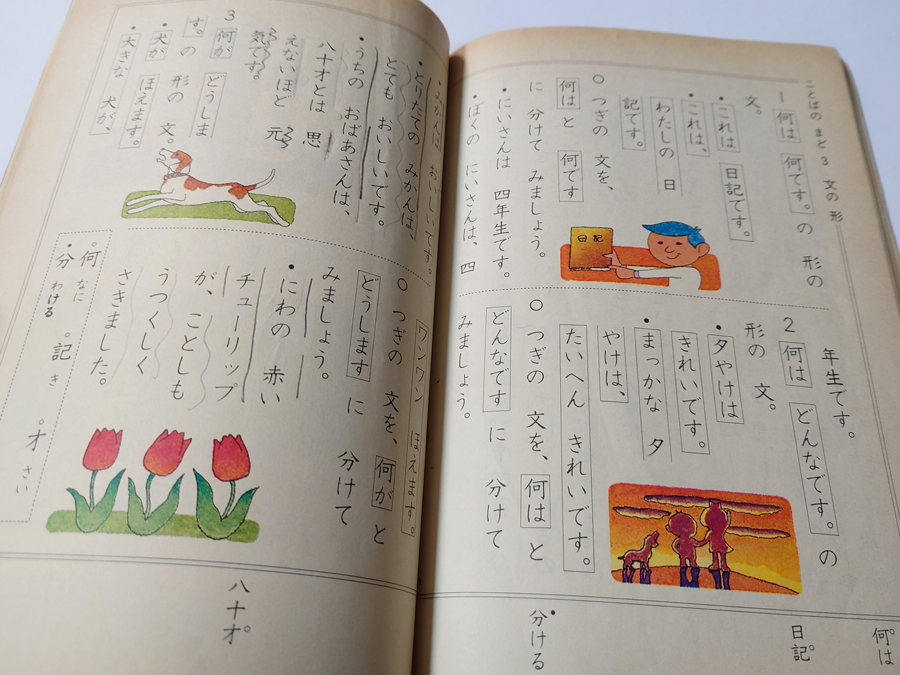 ことばの まど 3 文の 形
1 何は 何です。の 形の
文。
・これは 日記です。
・これは、
わたしの 日
記です。
日記
○ つぎの 文を、
何は と 何です
に 分けて みましょう。
・にいさんは 四年生です。
・ぼくの にいさんは、四
年生です。
2 何は どんなです。の
形の 文。
・夕やけは
きれいです。
・まっかな 夕
やけは、
たいへん きれいです。
○ つぎの 文を、何は と
どんなです に 分けて
みましょう。
何は
日記
分ける
・みかんは おいしいです。
・とりたての みかんは、
とても おいしいです。
・うちの おばあさんは、
八十才とは 思
えないほど 元
気です。
3 何が どうしま
す。の 形の 文。
・犬が ほえます。
・大きな 犬が、
ワンワン ほえます。
○ つぎの 文を、何が と
どうします に 分けて
みましょう。
・にわの 赤い
チューリップ
が、ことしも
うつくしく
さきました。
何 なに 記 き 才 さい
分 わける
八十才